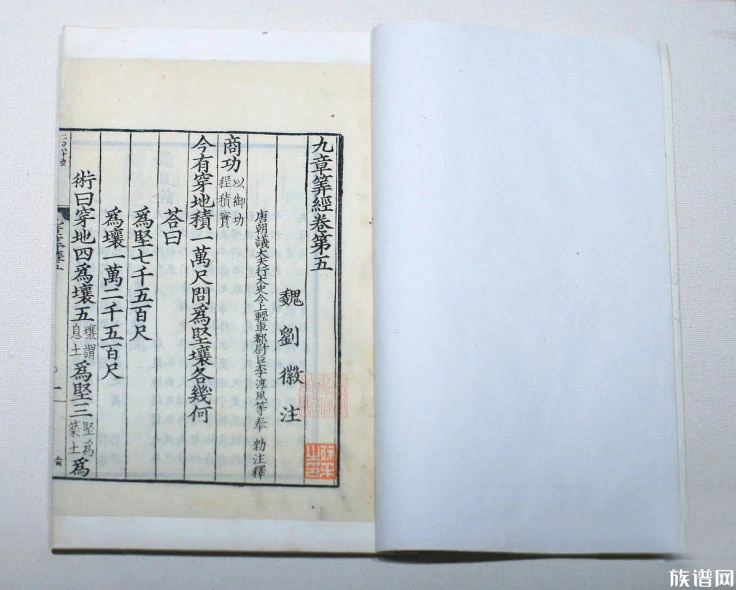 九章筭經卷第五
魏劉徽注
唐朝議大夫行太史令上輕車都尉臣李淳風等奉 勑注釋
商功以御功程積實
今有穿地積一萬尺問爲堅壤各幾何
荅曰
爲堅七千五百尺
爲壤一萬二千五百尺
術曰穿地四爲壤五壤謂息土爲堅三堅爲築土爲
族谱网